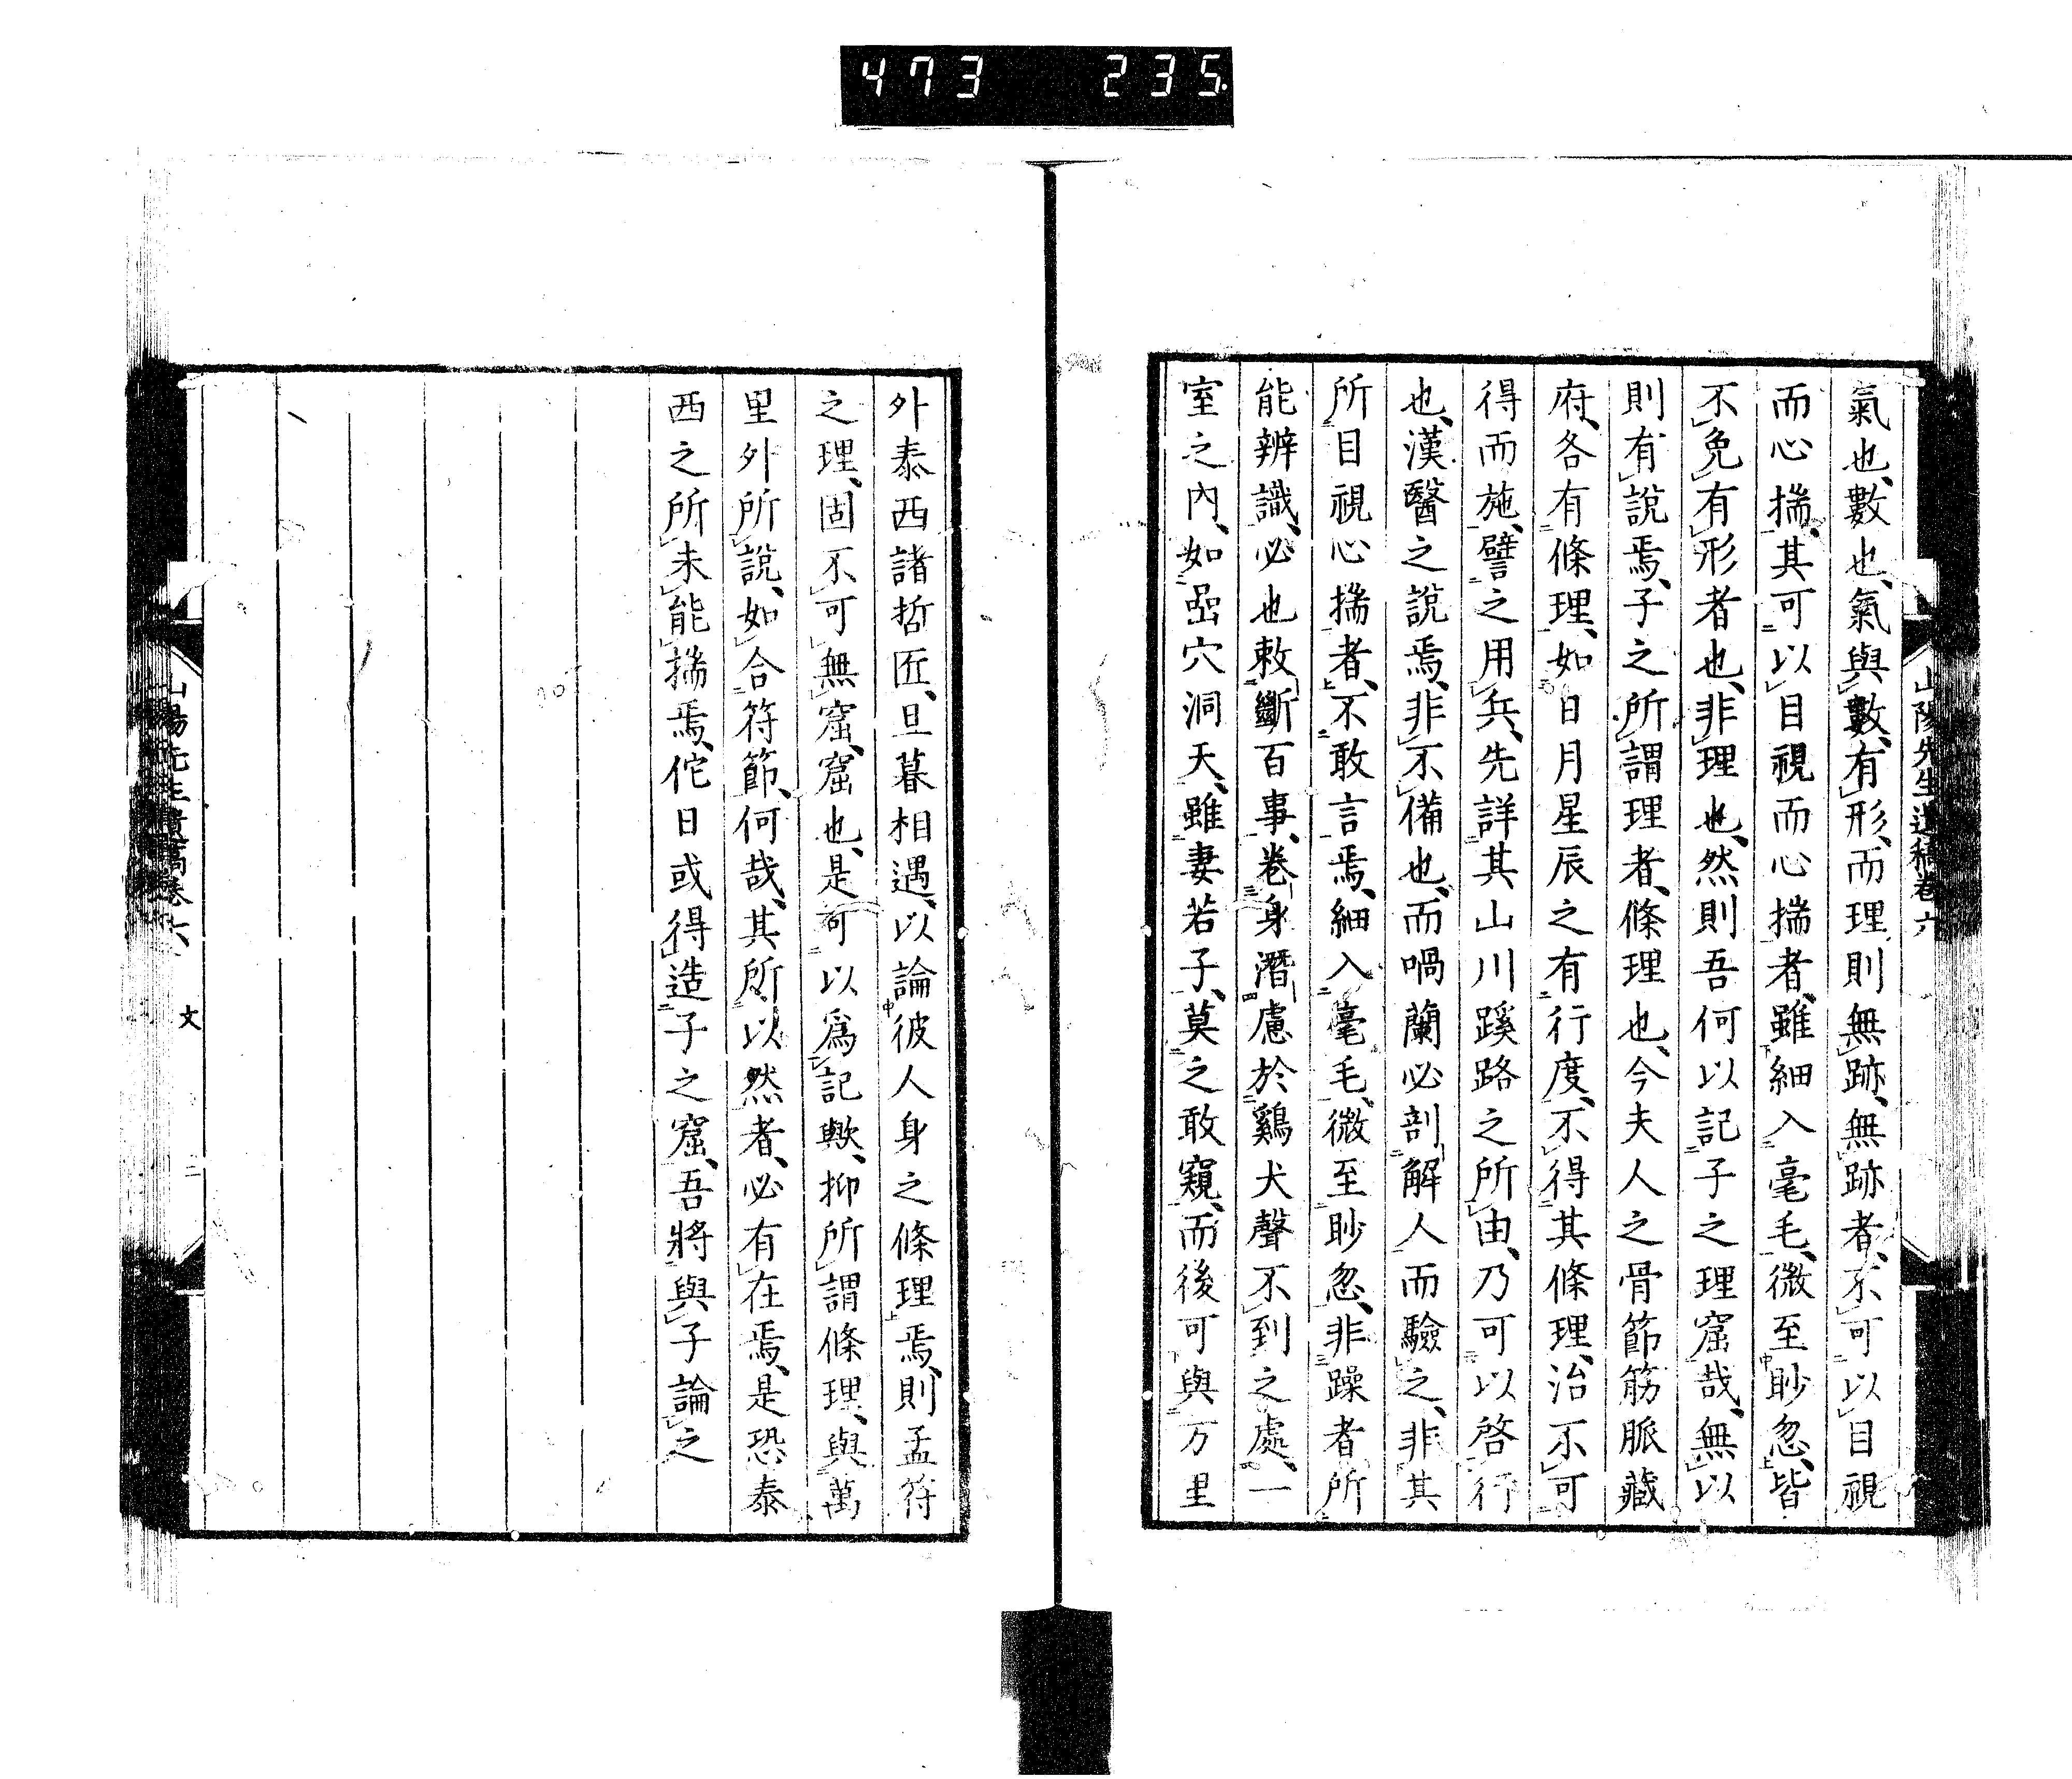 473 235
山陽先生遺稿卷六
氣也、數也、氣與數、有形、而理則無跡、無跡者、不可以目視
而心揣、其可以目視而心揣者、雖細入毫毛、微至眇忽、皆
不免有形者也、非理也、然則吾何以記子之理窟哉、無以
則有說焉、子之所謂理者、條理也、今夫人之骨節筋脈藏
府、各有條理、如日月星辰之有行度、不得其條理、治不可
得而施、譬之用兵、先詳其山川蹊路之所由、乃可以啓行
也、漢醫之說焉、非不備也、而喎蘭必剖解人而驗之、非其
所目視心揣者、不敢言焉、細入毫毛、微至眇忽、非躁者所
能辨識、必也敕斷百事、卷身潛慮於鷄犬聲不到之處、一
室之內、如嵒穴洞天、雖妻若子、莫之敢窺、而後可與万里
外泰西諸哲匠、旦暮相遇、以論彼人身之條理焉、則孟符
之理、固不可無窟、窟也、是可以爲記歟、抑所謂條理、與萬
里外所說、如合符節、何哉、其所以然者、必有在焉、是恐泰
西之所未能揣焉、佗日或得造子之窟、吾將與子論之
山陽先生遺稿卷六 文 二